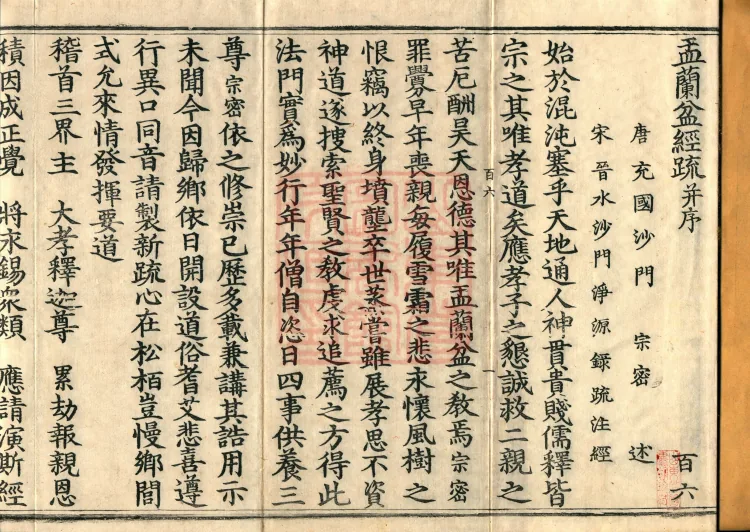 盂蘭盆經疏并序 百六
唐充國沙門 宗密 述
宋晉水沙門淨源錄疏注經
始於混沌塞乎天地通人神貫貴賤儒釋皆
宗之其唯孝道矣應孝子之懇誠救二親之
百六 一
苦厄酬昊天恩德其唯盂蘭盆之教焉宗密
罪釁早年喪親每履雪霜之悲永懷風樹之
恨竊以終身墳壟卒世蒸嘗雖展孝思不資
神道遂搜索聖賢之教虔求追薦之方得此
法門實為妙行年年僧自恣日四事供養三
尊宗密依之修崇已歷多載兼講其誥用示
未聞今因歸鄉依日開設道俗耆艾悲喜遵
行異口同音請製新疏心在松栢豈慢鄉閭
式允來情發揮要道
稽首三界主 大孝釋迦尊 累劫報親恩
積因成正覺 將永錫眾類 應請演斯經